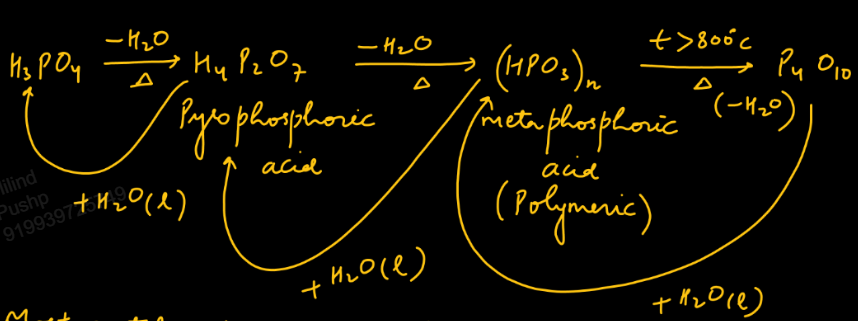 H₃PO₄ —H₂O→ Δ H₄P₂O₇ —H₂O→ Δ (HPO₃)ₙ t > 800°C → Δ (-H₂O) P₄O₁₀
Pyrophosphoric
acid
metaphosphoric
acid
(Polymeric)
+ H₂O(l)
+ H₂O(l)
+ H₂O(l)
Pushp